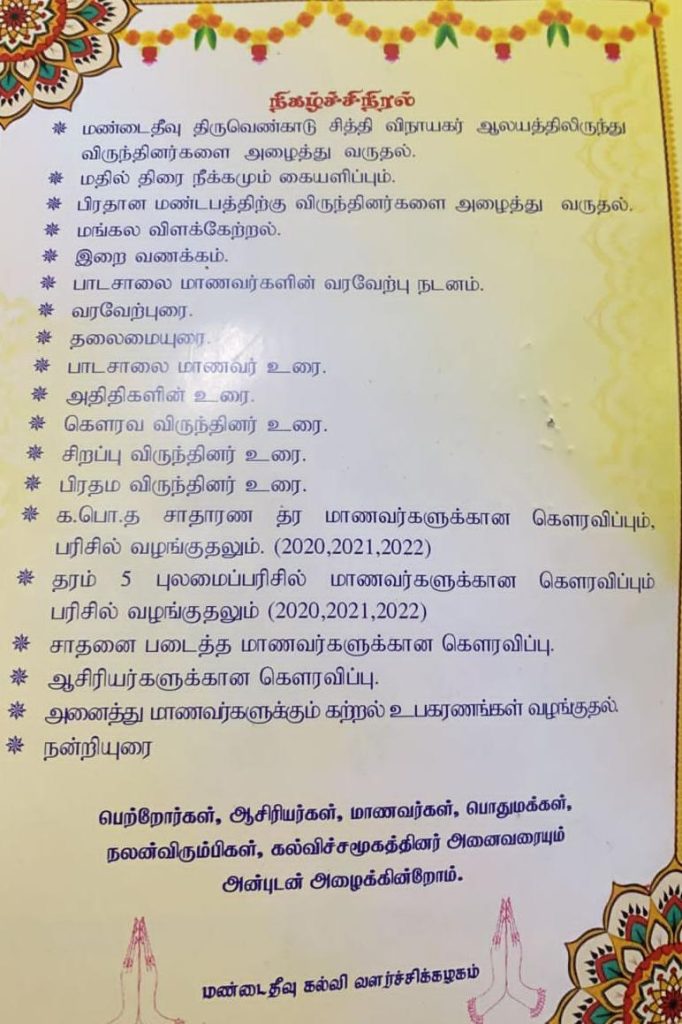 நிகழ்ச்சிநிரல்
✵ மண்டைதீவு திருவெண்காடு சித்தி விநாயகர் ஆலயத்திலிருந்து
விருந்தினர்களை அழைத்து வருதல்.
✵ மதில் திரை நீக்கமும் கையளிப்பும்.
✵ பிரதான மண்டபத்திற்கு விருந்தினர்களை அழைத்து வருதல்.
✵ மங்கல விளக்கேற்றல்.
✵ இறை வணக்கம்.
✵ பாடசாலை மாணவர்களின் வரவேற்பு நடனம்.
✵ வரவேற்புரை.
✵ தலைமையுரை.
✵ பாடசாலை மாணவர் உரை.
✵ அதிதிகளின் உரை.
✵ கௌரவ விருந்தினர் உரை.
✵ சிறப்பு விருந்தினர் உரை.
✵ பிரதம விருந்தினர் உரை.
✵ க.பொ.த சாதாரண த்ர மாணவர்களுக்கான கௌரவிப்பும்,
பரிசில் வழங்குதலும். (2020,2021,2022)
✵ தரம் 5 புலமைப்பரிசில் மாணவர்களுக்கான கௌரவிப்பும்
பரிசில் வழங்குதலும் (2020,2021,2022)
✵ சாதனை படைத்த மாணவர்களுக்கான கௌரவிப்பு.
✵ ஆசிரியர்களுக்கான கௌரவிப்பு.
✵ அனைத்து மாணவர்களுக்கும் கற்றல் உபகரணங்கள் வழங்குதல்.
✵ நன்றியுரை
பெற்றோர்கள், ஆசிரியர்கள், மாணவர்கள், பொதுமக்கள்,
நலன்விரும்பிகள், கல்விச்சமூகத்தினர் அனைவரையும்
அன்புடன் அழைக்கின்றோம்.
மண்டைதீவு கல்வி வளர்ச்சிக்கழகம்